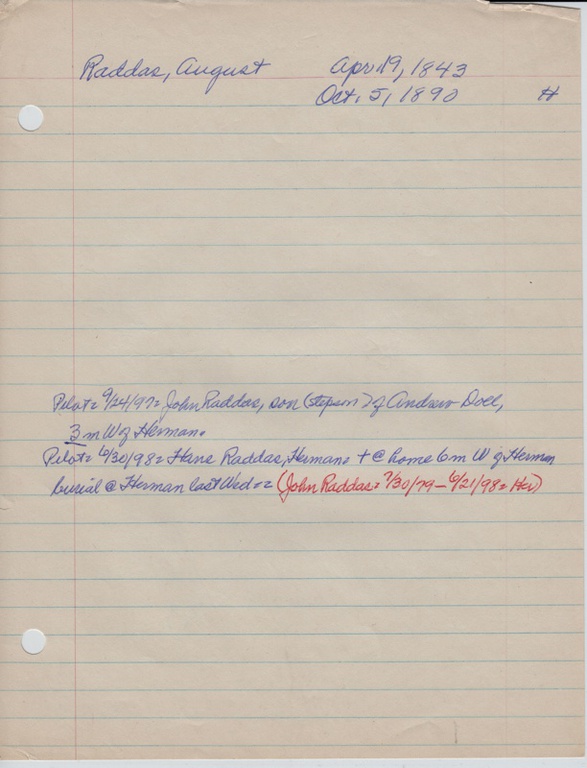 Raddas, August April 19, 1843
Oct. 5, 1890 H
Pilot = 9/24/97 = John Raddas, son (stepson?) of Andrew Doll,
3 m W of Herman.
Pilot = 6/30/98 = Hans Raddas, Herman = + @ home 6 m W of Herman
burial @ Herman last Wed = = (John Raddas = 7/30/79 – 6/21/98 = Her)